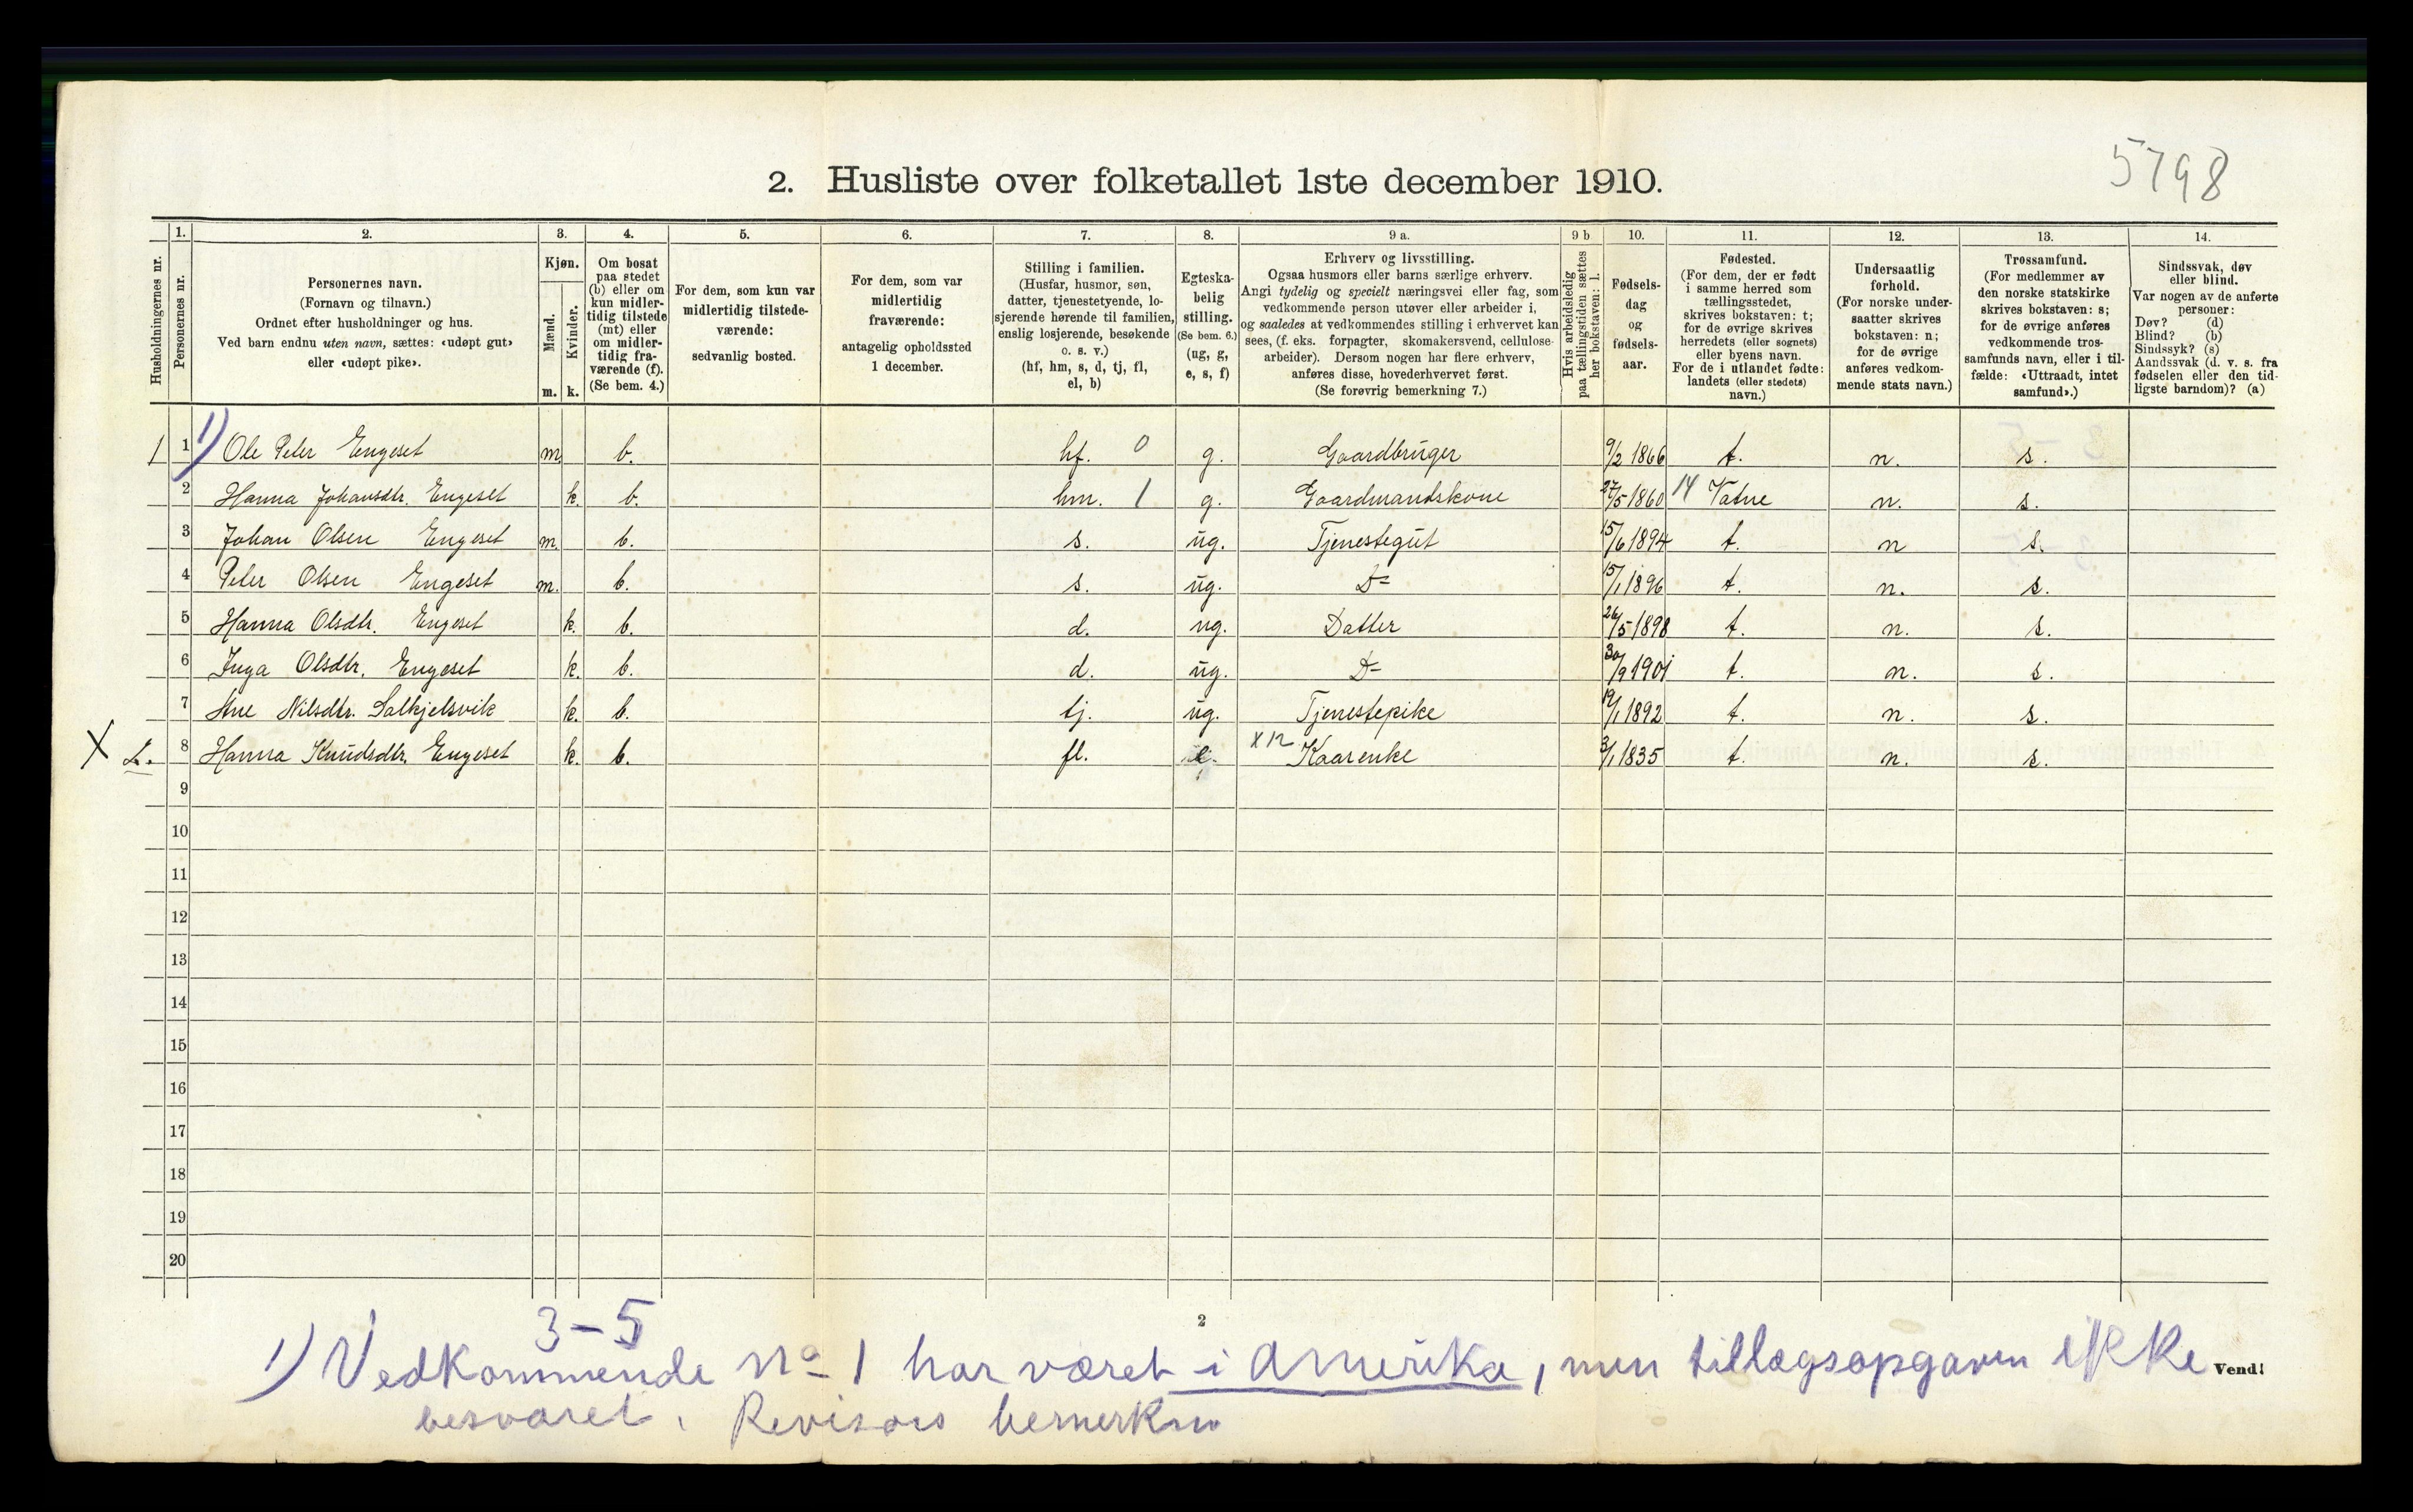 5798
2. Husliste over folketallet 1ste december 1910.
Husholdningernes nr.
1.
Personernes nr.
2.
Personernes navn.
(Fornavn og tilnavn.)
Ordnet efter husholdninger og hus.
Ved barn endnu uten navn, sættes: «udøpt gut»
eller «udøpt pike».
3.
Kjøn.
Mænd.
Kvinder.
m. k.
4.
Om bosat
paa stedet
(b) eller om
kun midler-
tidig tilstede
(mt) eller
om midler-
tidig fra-
værende (f).
(Se bem. 4.)
5.
For dem, som kun var
midlertidig tilstede-
værende:
sedvanlig bosted.
6.
For dem, som var
midlertidig
fraværende:
antagelig opholdssted
1 december.
7.
Stilling i familien.
(Husfar, husmor, søn,
datter, tjenestetyende, lo-
sjerende hørende til familien,
enslig losjerende, besøkende
o. s. v.)
(hf, hm, s, d, tj, fl,
el, b)
8.
Egteska-
belig
stilling.
(Se bem. 6.)
(ug, g,
e, s, f)
9 a.
Erhverv og livsstilling.
Ogsaa husmors eller barns særlige erhverv.
Angi tydelig og specielt næringsvei eller fag, som
vedkommende person utøver eller arbeider i,
og saaledes at vedkommendes stilling i erhvervet kan
sees, (f. eks. forpagter, skomakersvend, cellulose-
arbeider). Dersom nogen har flere erhverv,
anføres disse, hovederhvervet først.
(Se forøvrig bemerkning 7.)
9 b
Hvis arbeidsledig
paa tællingstiden sættes
her bokstaven: l.
10.
Fødsels-
dag
og
fødsels-
aar.
11.
Fødested.
(For dem, der er født
i samme herred som
tællingsstedet,
skrives bokstaven: t;
for de øvrige skrives
herredets (eller sognets)
eller byens navn.
For de i utlandet fødte:
landets (eller stedets)
navn.)
12.
Undersaatlig
forhold.
(For norske under-
saatter skrives
bokstaven: n;
for de øvrige
anføres vedkom-
mende stats navn.)
13.
Trossamfund.
(For medlemmer av
den norske statskirke
skrives bokstaven: s;
for de øvrige anføres
vedkommende tros-
samfunds navn, eller i til-
fælde: «Uttraadt, intet
samfund».)
14.
Sindssvak, døv
eller blind.
Var nogen av de anførte
personer:
Døv? (d)
Blind? (b)
Sindssyk? (s)
Aandssvak (d. v. s. fra
fødselen eller den tid-
ligste barndom)? (a)
1 1 1) Ole Peter Engeset m b. hf. 0 g. Gaardbruger 9/2 1866 t. n. s.
2 Hanna Johansdtr. Engeset k. b. hm. 1 g. Gaardmandskone 27/5 1860 14 Vatne n. s.
3 Johan Olsen Engeset m. b. s. ug. Tjenestegut 15/6 1894 t. n s.
4 Peter Olsen Engeset m. b. s. ug. D= 15/1 1896 t. n. s.
5 Hanna Olsdtr. Engeset k. b. d. ug. Datter 26/5 1898 t. n. s.
6 Inga Olsdtr. Engeset k. b. d. ug. D- 30/9 1901 t. n. s.
7 Nilsdtr. k. b. tj. ug. Tjenestepike 19/1 1892 t. n. s.
X 2. 8 Hanna Knudsdtr. Engeset k. b. fl. e. X 12 Kaarenke 3/1 1835 t. n. s.
9
10
11
12
13
14
15
16
17
18
19
20
3-5
2
1) Vedkommende No 1 har været i Amerika, men tillægsopgaven ikke
Vend!
besvaret. Revisors